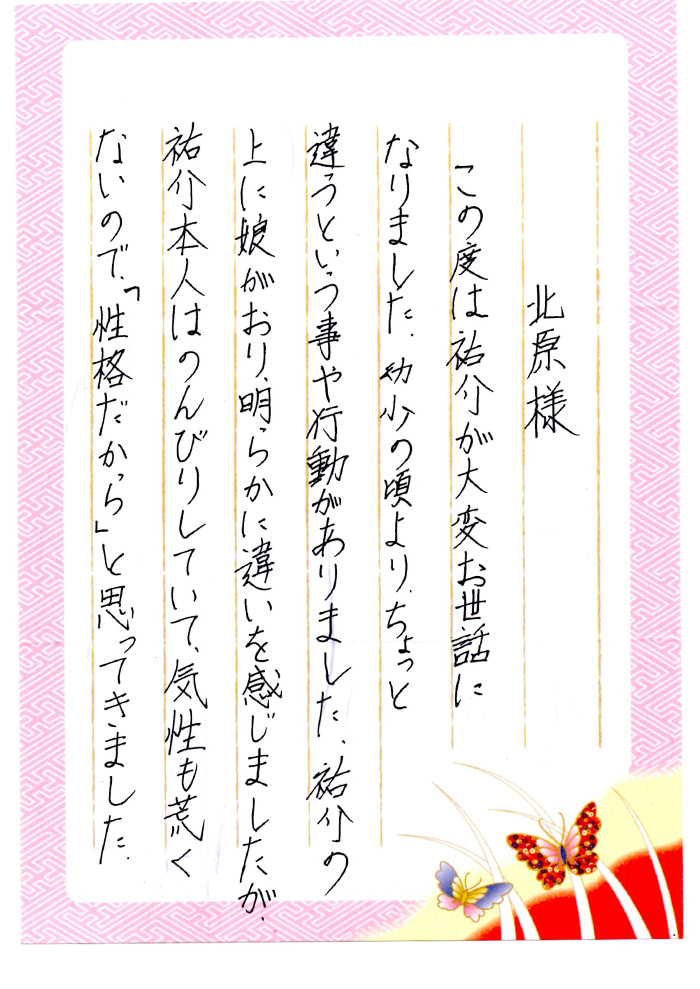 北原様
この度は祐介が大変お世話に
なりました。幼少の頃より、ちょっと
違うという事や行動がありました、祐介の
上に娘がおり、明らかに違いを感じましたが、
祐介本人はのんびりしていて、気性も荒く
ないので、「性格だから」と思ってきました。